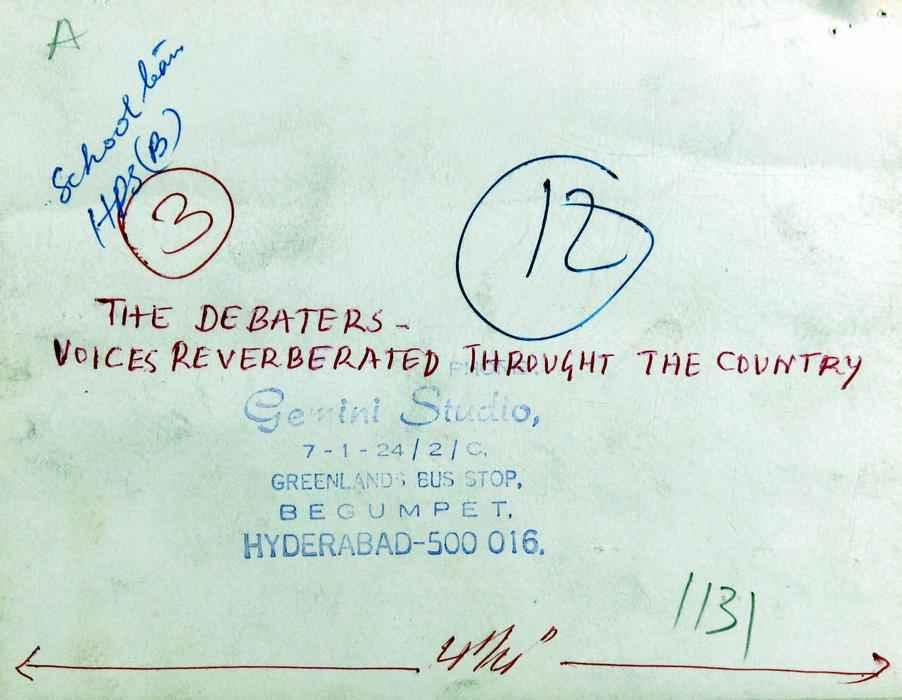 A
School
HPS(B)
3
12
THE DEBATERS-
VOICES REVERBERATED THROUGHT THE COUNTRY
PHONE:
Gemini Studio,
7-1-24/2/C,
GREENLANDS BUS STOP,
BEGUMPET,
HYDERABAD-500 016.
1131